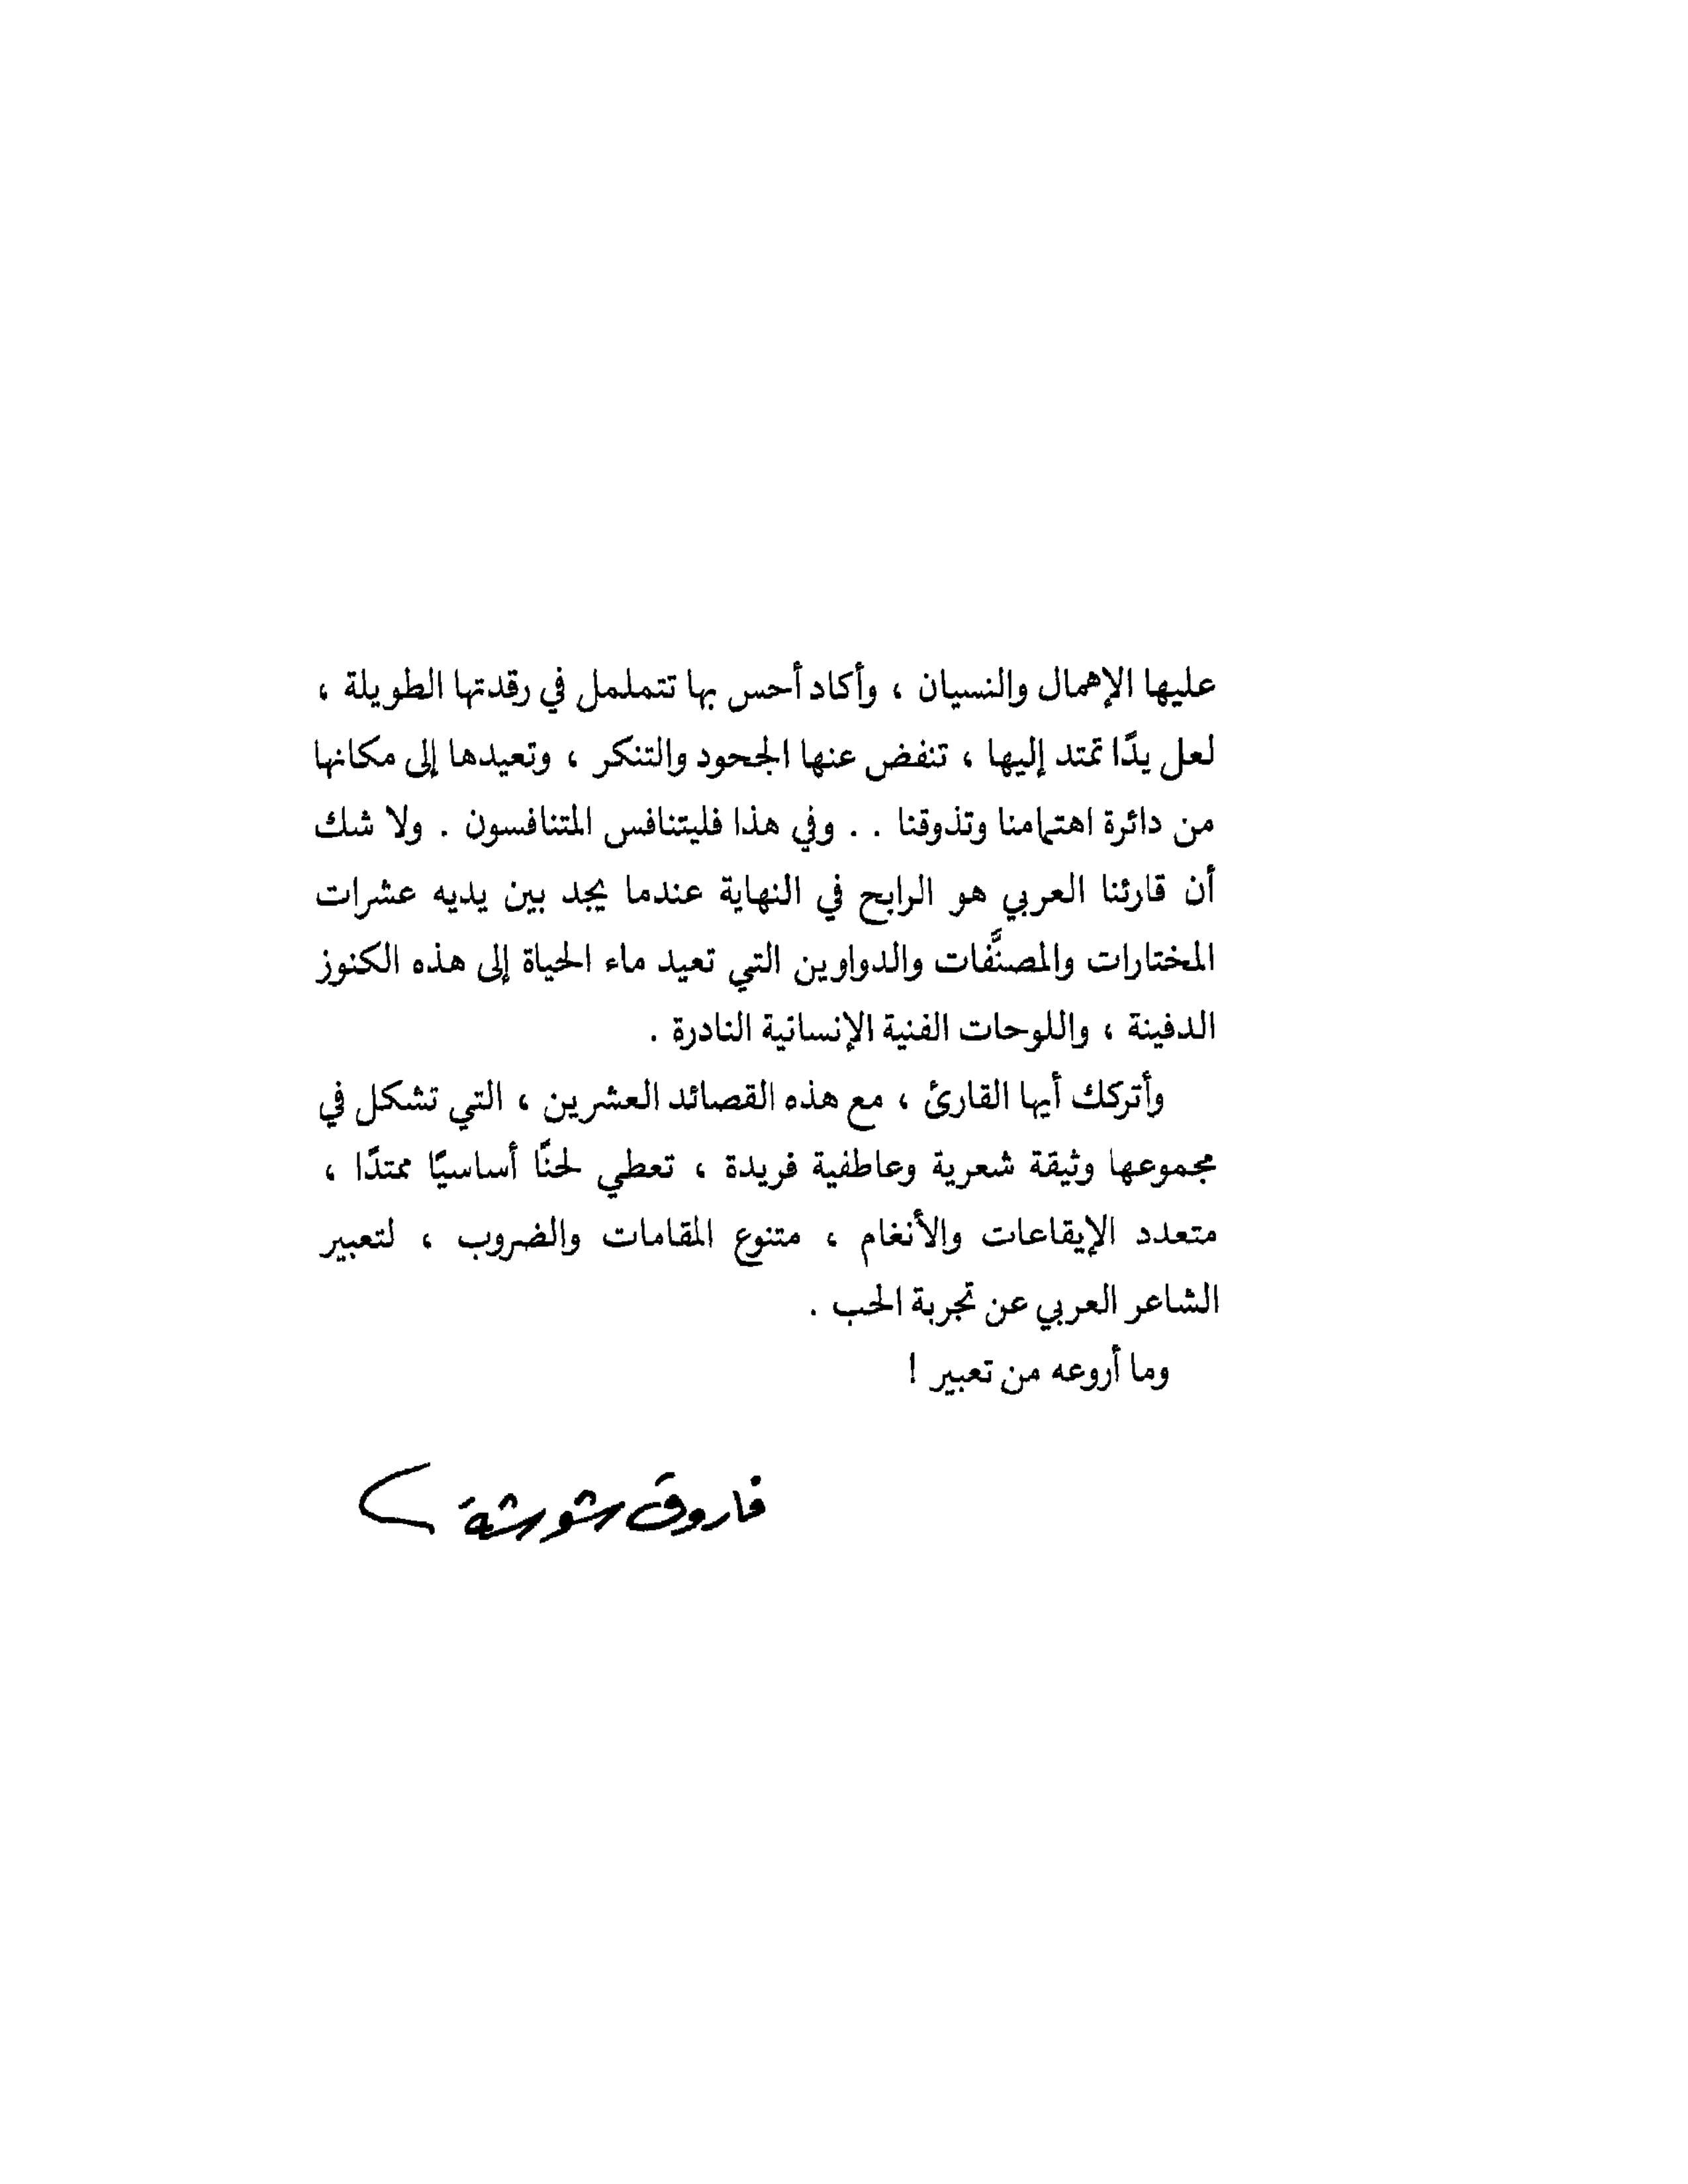 عليها الإهمال والنسيان ، وأكاد أحس بها تتململ في رقدتها الطويلة ،
لعل يدًا تمتد إليها ، تنفض عنها الجحود والتنكر ، وتعيدها إلى مكانها
من دائرة اهتمامنا وتذوقنا . . وفي هذا فليتنافس المتنافسون . ولا شك
أن قارئنا العربي هو الرابح في النهاية عندما يجد بين يديه عشرات
المختارات والمصنَّفات والدواوين التي تعيد ماء الحياة إلى هذه الكنوز
الدفينة ، واللوحات الفنية الإنسانية النادرة .
وأتركك أيها القارئ ، مع هذه القصائد العشرين ، التي تشكل في
مجموعها وثيقة شعرية وعاطفية فريدة ، تعطي لحنًا أساسيًا ممتدًا ،
متعدد الإيقاعات والأنغام ، متنوع المقامات والضروب ، لتعبير
الشاعر العربي عن تجربة الحب .
وما أروعه من تعبير !
فاروق شوشة